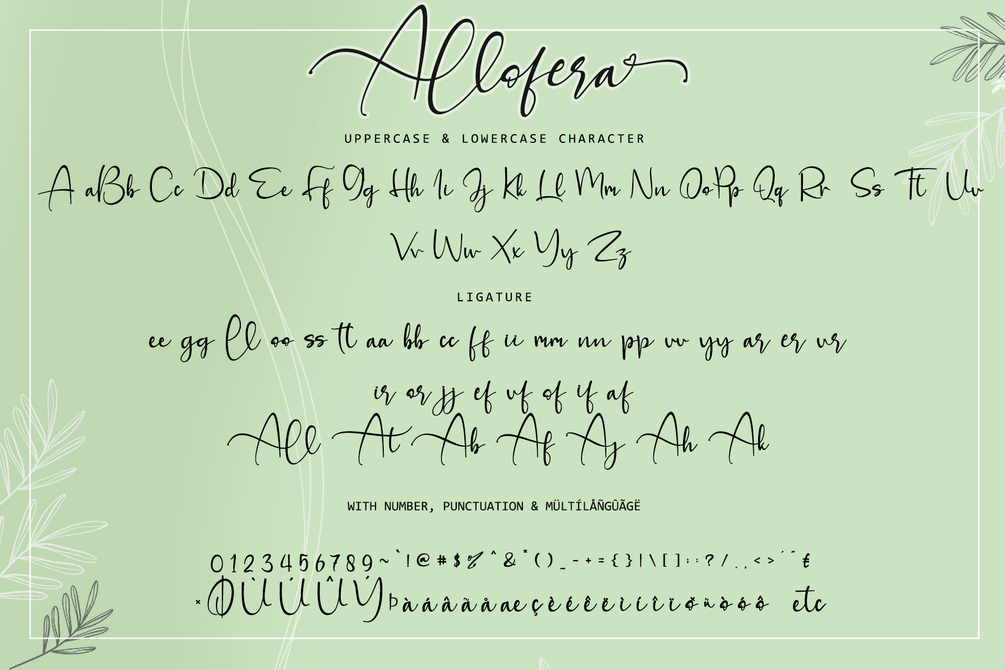 Allofera
UPPERCASE & LOWERCASE CHARACTER
A aBb Cc Dd Ee Ff Gg Hh Ii Jj Kk Ll Mm Nn OoPp Qq Rr Ss Tt Uu
Vv Ww Xx Yy Zz
LIGATURE
ee gg ll oo ss tt aa bb cc ff ii mm nn pp uu yy ar er ur
ir or jj ef uf of if af
All At Ab Af Aj Ah Ak
WITH NUMBER, PUNCTUATION & MÜLTÍLÅÑGÛÃGË
0123456789~`!@#$%^&*()_-+={}|\[]:;?/.,<>'"€
×ØÙÚÛÜÝÞàáâãäåæçèéêëìíîïðñòóô etc